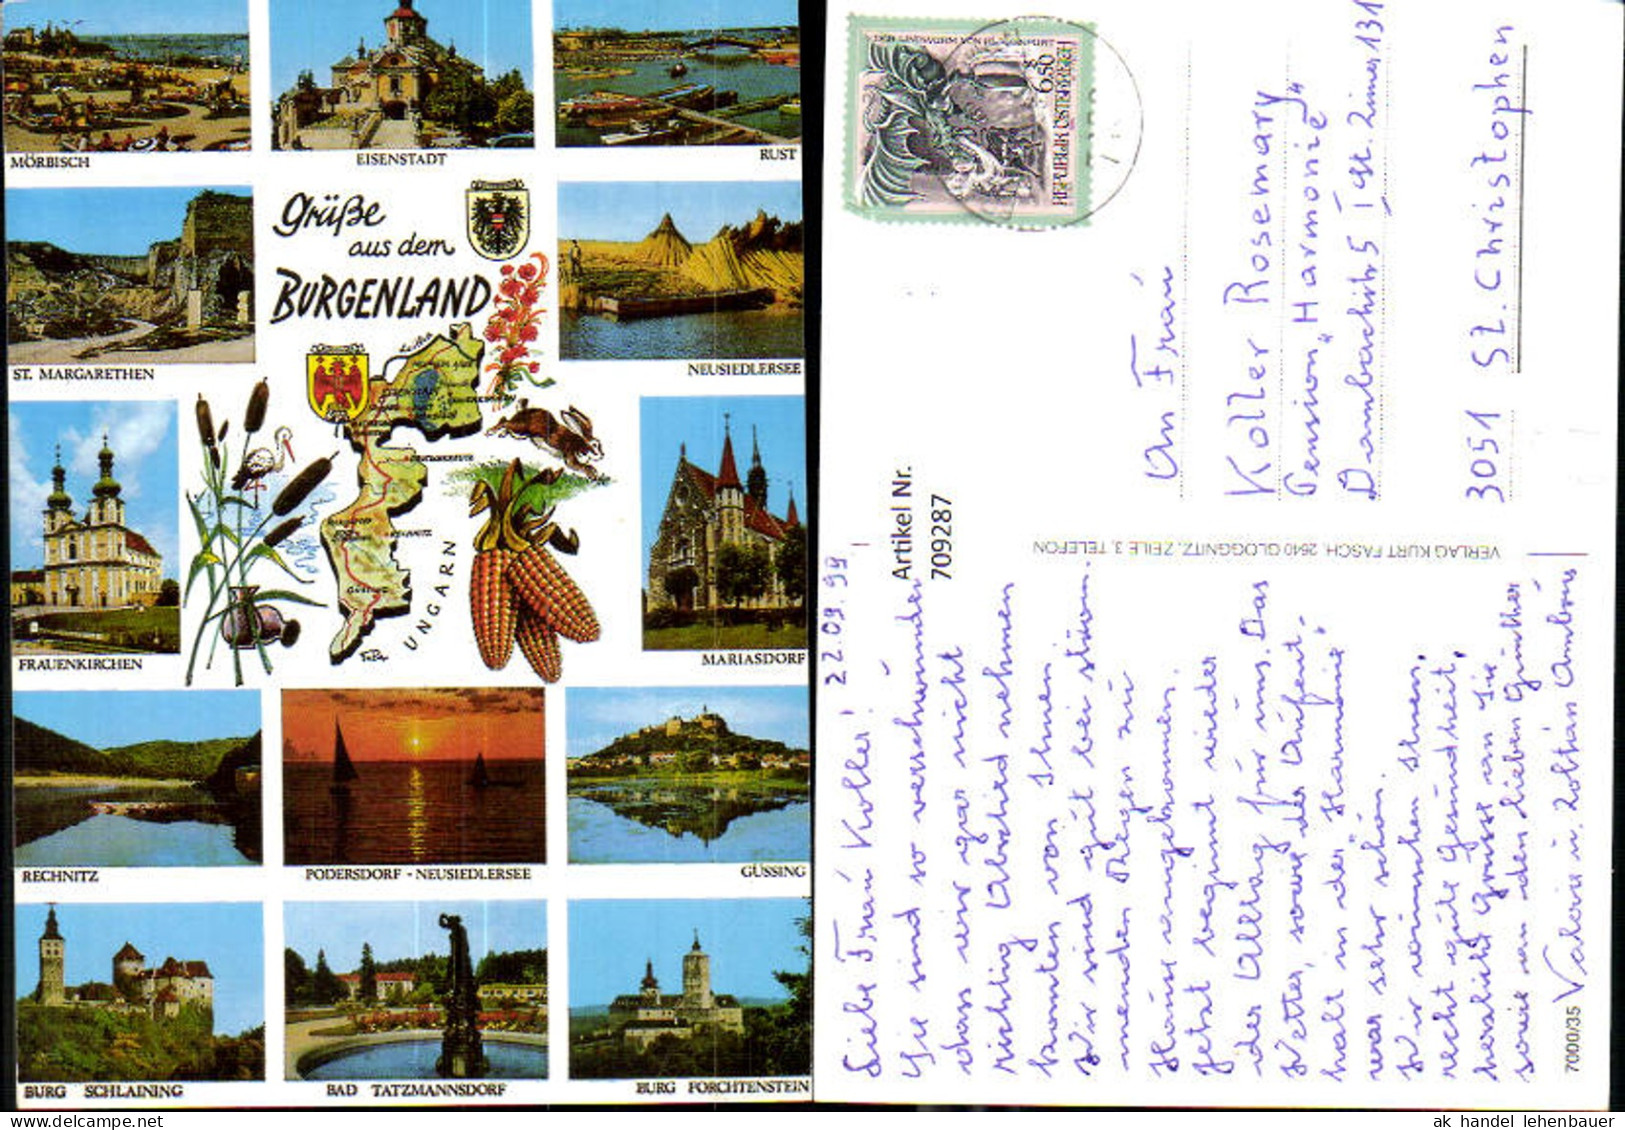 MÖRBISCH
EISENSTADT
RUST
Grüße
aus dem
BURGENLAND
ST. MARGARETHEN
NEUSIEDLERSEE
UNGARN
FRAUENKIRCHEN
MARIASDORF
RECHNITZ
PODERSDORF - NEUSIEDLERSEE
GÜSSING
BURG SCHLAINING
BAD TATZMANNSDORF
BURG FORCHTENSTEIN
REPUBLIK ÖSTERREICH
S 6.50
An Frau
Koller Rosemary
Pension „Harmonie"
3051 St. Christophen
Artikel Nr.
709287
VERLAG KURT FASCH, 2640 GLOGGNITZ, ZEILE 3, TELEFON
22.09.99
Liebe Frau Koller!
Sie sind so verschwunden
dass wir gar nicht
richtig Abschied nehmen
konnten von Ihnen
Wir sind gut bei strömenden
Regen zu
Hause angekommen.
Jetzt beginnt wieder
der Alltag für uns. Das
Wetter, sowie der Aufent-
halt in der „Harmonie"
war sehr schön.
Wir wünschen Ihnen,
recht gute Gesundheit,
herzlicht Grüsse an Sie
sowie an den lieben Günther
Valerie u. Zoltán Ambrus
7000/35
ak handel lehenbauer